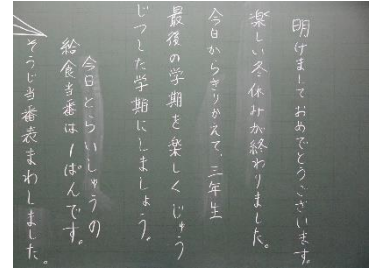 明けましておめでとうございます。
楽しい冬休みが終わりました。
今日からきりかえて、三年生
最後の学期を楽しくじゅう
じつした学期にしましょう。
今日とらいしゅうの
給食当番は1ぱんです。
そうじ当番表まわしました。